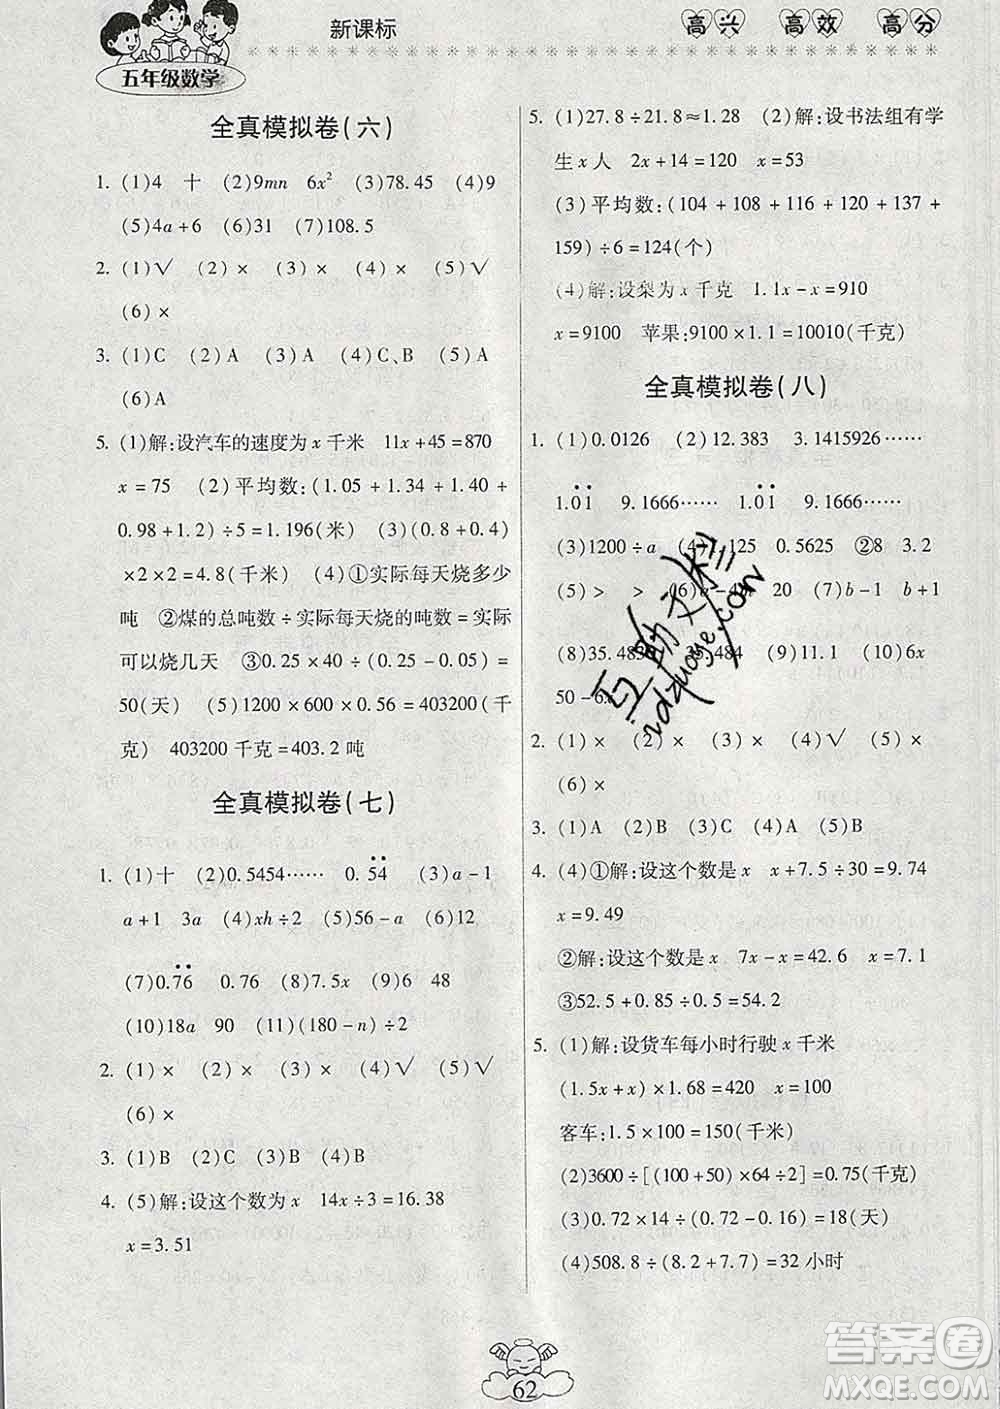 新课标
高兴 高效 高分
五年级数学
全真模拟卷(六)
1. (1)4 十 (2)9mn 6x² (3)78.45 (4)9
(5)4a+6 (6)31 (7)108.5
2. (1)√ (2)× (3)× (4)× (5)√
(6)×
3. (1)C (2)A (3)A (4)C、B (5)A
(6)A
5. (1)解:设汽车的速度为x千米 11x+45=870
x=75 (2)平均数:(1.05+1.34+1.40+
0.98+1.2)÷5=1.196(米) (3)(0.8+0.4)
×2×2=4.8(千米) (4)①实际每天烧多少
吨 ②煤的总吨数÷实际每天烧的吨数=实际
可以烧几天 ③0.25×40÷(0.25-0.05)=
50(天) (5)1200×600×0.56=403200(千
克) 403200千克=403.2吨
全真模拟卷(七)
1. (1)十 (2)0.5454…… 0.5̇4̇ (3)a-1
a+1 3a (4)xh÷2 (5)56-a (6)12
(7)0.7̇6̇ 0.76 (8)7.5x (9)6 48
(10)18a 90 (11)(180-n)÷2
2. (1)× (2)× (3)√ (4)√ (5)√
(6)×
3. (1)B (2)C (3)B (4)B
4. (5)解:设这个数为x 14x÷3=16.38
x=3.51
5. (1)27.8÷21.8≈1.28 (2)解:设书法组有学
生x人 2x+14=120 x=53
(3)平均数:(104+108+116+120+137+
159)÷6=124(个)
(4)解:设梨为x千克 1.1x-x=910
x=9100 苹果:9100×1.1=10010(千克)
全真模拟卷(八)
1. (1)0.0126 (2)12.383 3.1415926……
1.0̇1̇ 9.1666…… 1.0̇1̇ 9.1666……
(3)1200÷a (4) 125 0.5625 ②8 3.2
(5)> > (6) 20 (7)b-1 b+1
(8)35.48 484 (9)11.1 (10)6x
50-6x
2. (1)× (2)× (3)× (4)√ (5)×
(6)×
3. (1)A (2)B (3)C (4)A (5)B
4. (4)①解:设这个数是x x+7.5÷30=9.74
x=9.49
②解:设这个数是x 7x-x=42.6 x=7.1
③52.5+0.85÷0.5=54.2
5. (1)解:设货车每小时行驶x千米
(1.5x+x)×1.68=420 x=100
客车:1.5×100=150(千米)
(2)3600÷[(100+50)×64÷2]=0.75(千克)
(3)0.72×14÷(0.72-0.16)=18(天)
(4)508.8÷(8.2+7.7)=32小时
互助文档
答案圈
MXQE.COM
62